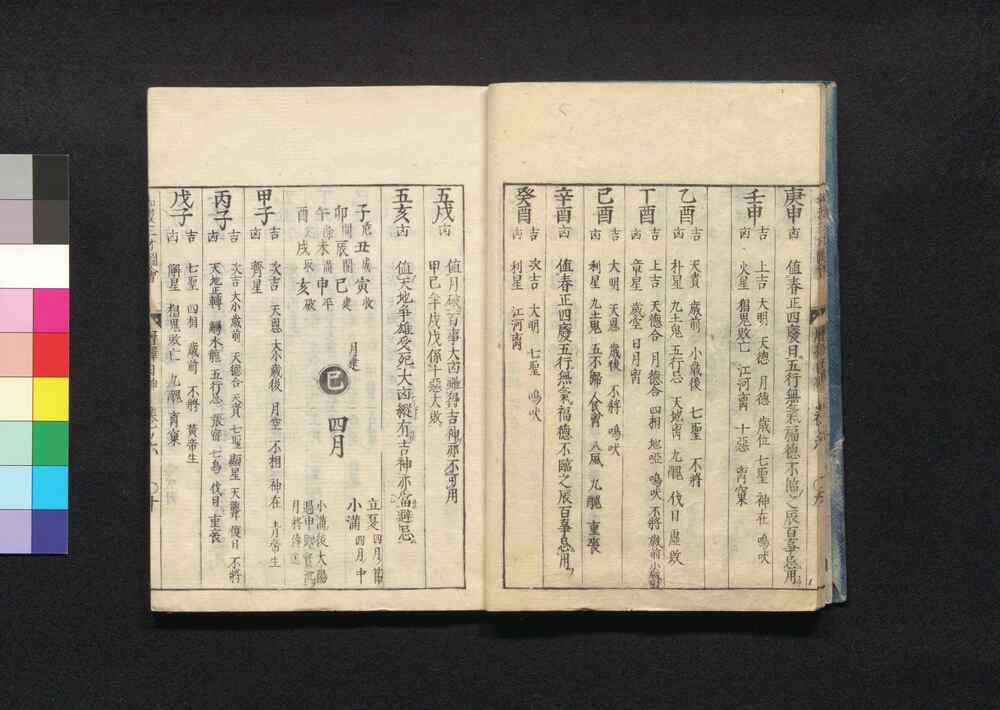 庚申 凶 值春正四廢日五行無氣福德不臨之辰百事忌用
壬申 吉 上吉 大明 天德 月德 歲位 七聖 神在 鳴吠
凶 火星 猖鬼敗亡 江河离 十惡
乙酉 吉 天貴 歲前 小歲後 七聖 不將
凶 朴星 九土鬼 五行忌 天地离 九醜 伐日 虛敗
丁酉 吉 上吉 天德合 月德合 四相 地啞 鳴吠 不將
凶 歲空 日月离
己酉 吉 大明 天恩 歲後 不將 鳴吠
凶 利星 九土鬼 五不歸 八風 九醜 重喪
辛酉 凶 值春正四廢五行無氣福德不臨之辰百事忌用
癸酉 吉 次吉 大明 七聖 鳴吠
凶 利星 江河离
五戌 凶 值月破百事大凶雖得吉神那不可用
甲己年戌戊係十惡大敗
五亥 凶 值天地爭雄受死大凶縱有吉神亦當避忌
子危丑成寅收
卯開辰閉巳建
午除未滿申平
酉定戌執亥破
月建
巳 四月
立夏四月節
小滿四月中
小滿後大陽
甲子 吉 次吉 天恩 大小歲後 月空 不相 神在 青帝生
凶
丙子 吉 次吉 大小歲前 天德合 天貴 七聖 顯星 天聾 復日 不將
凶 天地正轉 觸水龍 五行忌 七鳥 伐日 重喪
戊子 吉 七聖 四相 歲前 不將 黃帝生
凶 解星 猖鬼敗亡 九醜